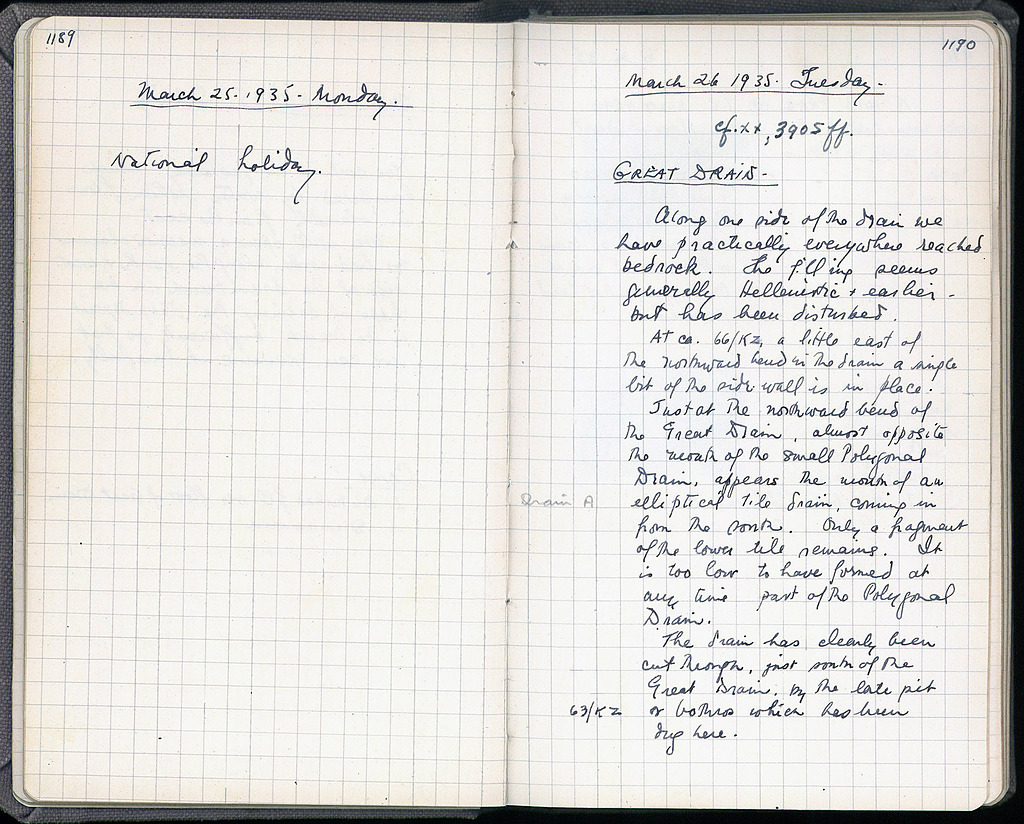 1189
March 25. 1935. Monday.
National holiday.
1190
March 26 1935. Tuesday.
cf. xx, 3905 ff.
GREAT DRAIN-
Along one side of the drain we
have practically everywhere reached
bedrock. The filling seems
generally Hellenistic + earlier -
but has been disturbed.
At ca. 66/KZ, a little east of
the northward bend in the drain a single
bit of the side wall is in place.
Just at the northward bend of
the Great Drain, almost opposite
the mouth of the small Polygonal
Drain, appears the mouth of an
Drain A
elliptical tile drain, coming in
from the south. Only a fragment
of the lower tile remains. It
is too low to have formed at
any time part of the Polygonal
Drain.
The drain has clearly been
cut through, just south of the
Great Drain, by the late pit
63/KZ
or bothros which has been
dug here.